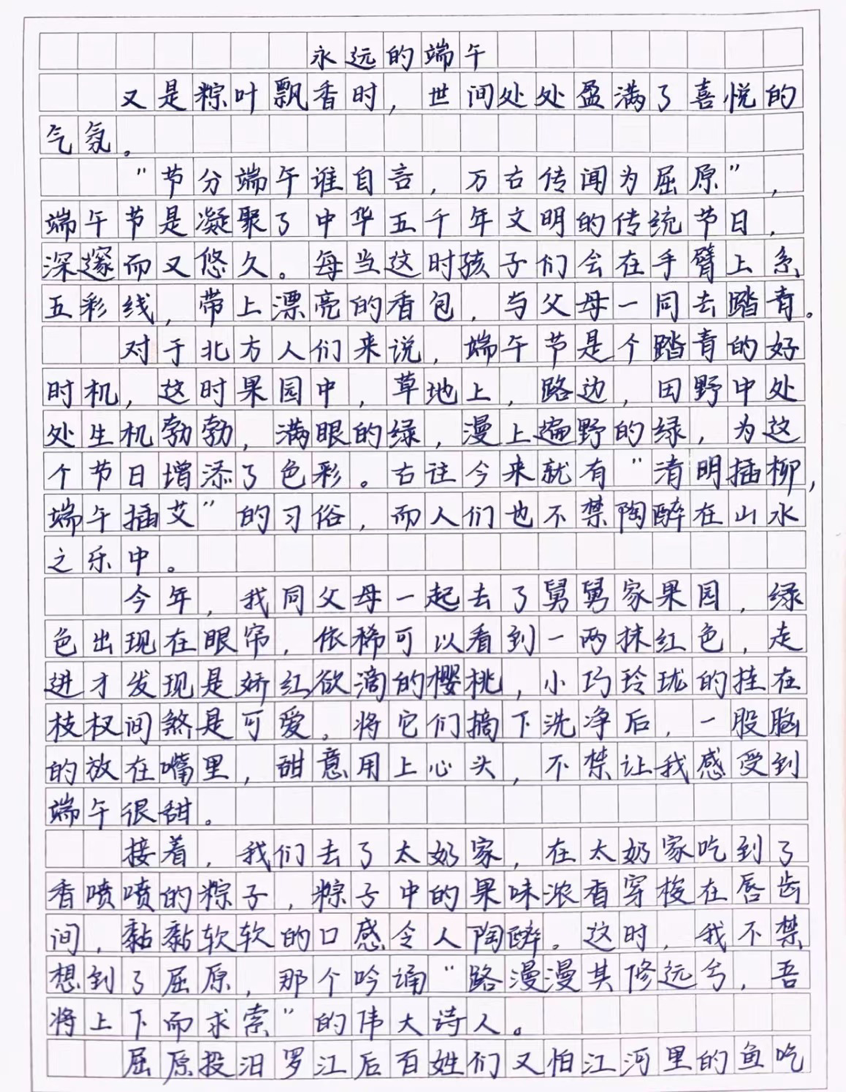 永远的端午
又是粽叶飘香时，世间处处盈满了喜悦的
气氛。
"节分端午谁自言，万古传闻为屈原"，
端午节是凝聚了中华五千年文明的传统节日，
深邃而又悠久。每当这时孩子们会在手臂上系
五彩线，带上漂亮的香包，与父母一同去踏青。
对于北方人们来说，端午节是个踏青的好
时机，这时果园中，草地上，路边，田野中处
处生机勃勃，满眼的绿，漫上遍野的绿，为这
个节日增添了色彩。古往今来就有"清明插柳，
端午插艾"的习俗，而人们也不禁陶醉在山水
之乐中。
今年，我同父母一起去了舅舅家果园，绿
色出现在眼帘，依稀可以看到一两抹红色，走
进才发现是娇红欲滴的樱桃，小巧玲珑的挂在
枝杈间煞是可爱，将它们摘下洗净后，一股脑
的放在嘴里，甜意用上心头，不禁让我感受到
端午很甜。
接着，我们去了太奶家，在太奶家吃到了
香喷喷的粽子，粽子中的果味浓香穿梭在唇齿
间，黏黏软软的口感令人陶醉。这时，我不禁
想到了屈原，那个吟诵"路漫漫其修远兮，吾
将上下而求索"的伟大诗人。
屈原投汨罗江后百姓们又怕江河里的鱼吃